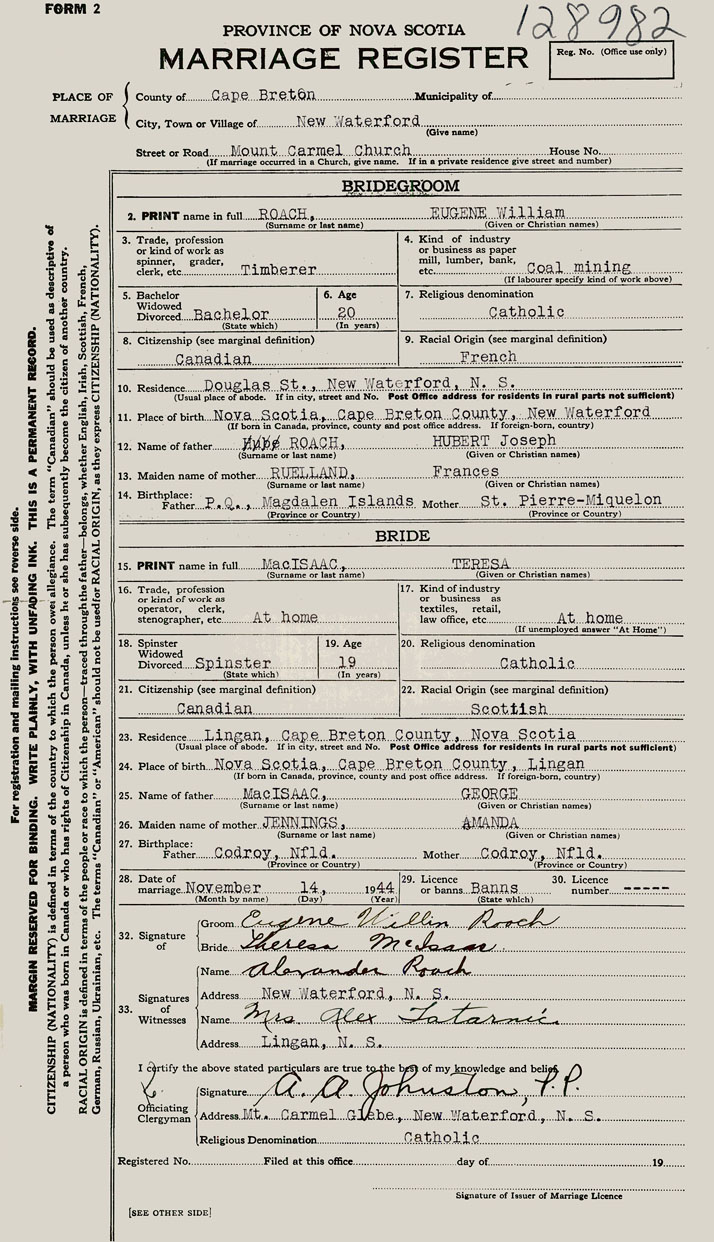 FORM 2
128982
PROVINCE OF NOVA SCOTIA
MARRIAGE REGISTER
Reg. No. (Office use only)
PLACE OF MARRIAGE
County of Cape Breton Municipality of
City, Town or Village of New Waterford
(Give name)
Street or Road Mount Carmel Church House No.
(If marriage occurred in a Church, give name. If in a private residence give street and number)
BRIDEGROOM
2. PRINT name in full ROACH, EUGENE William
(Surname or last name) (Given or Christian names)
3. Trade, profession or kind of work as spinner, grader, clerk, etc. Timberer
4. Kind of industry or business as paper mill, lumber, bank, etc. Coal mining
(If labourer specify kind of work above)
5. Bachelor Widowed Divorced Bachelor
(State which)
6. Age 20
(In years)
7. Religious denomination
Catholic
8. Citizenship (see marginal definition)
Canadian
9. Racial Origin (see marginal definition)
French
10. Residence Douglas St., New Waterford, N. S.
(Usual place of abode. If in city, street and No. Post Office address for residents in rural parts not sufficient)
11. Place of birth Nova Scotia, Cape Breton County, New Waterford
(If born in Canada, province, county and post office address. If foreign-born, country)
12. Name of father ROACH, HUBERT Joseph
(Surname or last name) (Given or Christian names)
13. Maiden name of mother RUELLAND, Frances
(Surname or last name) (Given or Christian names)
14. Birthplace:
Father P.Q., Magdalen Islands Mother St. Pierre-Miquelon
(Province or Country) (Province or Country)
BRIDE
15. PRINT name in full MacISAAC, TERESA
(Surname or last name) (Given or Christian names)
16. Trade, profession or kind of work as operator, clerk, stenographer, etc. At home
17. Kind of industry or business as textiles, retail, law office, etc. At home
(If unemployed answer "At Home")
18. Spinster Widowed Divorced Spinster
(State which)
19. Age 19
(In years)
20. Religious denomination
Catholic
21. Citizenship (see marginal definition)
Canadian
22. Racial Origin (see marginal definition)
Scottish
23. Residence Lingan, Cape Breton County, Nova Scotia
(Usual place of abode. If in city, street and No. Post Office address for residents in rural parts not sufficient)
24. Place of birth Nova Scotia, Cape Breton County, Lingan
(If born in Canada, province, county and post office address. If foreign-born, country)
25. Name of father MacISAAC, GEORGE
(Surname or last name) (Given or Christian names)
26. Maiden name of mother JENNINGS, AMANDA
(Surname or last name) (Given or Christian names)
27. Birthplace:
Father Codroy, Nfld. Mother Codroy, Nfld.
(Province or Country) (Province or Country)
28. Date of marriage November 14, 1944
(Month by name) (Day) (Year)
29. Licence or banns Banns
(State which)
30. Licence number -----
32. Signature of
Groom Eugene Willin Roach
Bride Theresa McIsaac
33. Signatures of Witnesses
Name Alexander Roach
Address New Waterford, N. S.
Name Mrs Alex Tatarnic.
Address Lingan, N. S.
I certify the above stated particulars are true to the best of my knowledge and belief.
Officiating Clergyman
Signature A. A. Johnston, P.P.
Address Mt. Carmel Glebe, New Waterford, N. S.
Religious Denomination Catholic
Registered No. Filed at this office day of 19
Signature of Issuer of Marriage Licence
[SEE OTHER SIDE]
For registration and mailing instructions see reverse side.
MARGIN RESERVED FOR BINDING. WRITE PLAINLY, WITH UNFADING INK. THIS IS A PERMANENT RECORD.
CITIZENSHIP (NATIONALITY) is defined in terms of the country to which the person owes allegiance. The term "Canadian" should be used as descriptive of
a person who was born in Canada or who has rights of Citizenship in Canada, unless he or she has subsequently become the citizen of another country.
RACIAL ORIGIN is defined in terms of the people or race to which the person—traced through the father—belongs, whether English, Irish, Scottish, French,
German, Russian, Ukrainian, etc. The terms "Canadian" or "American" should not be used for RACIAL ORIGIN, as they express CITIZENSHIP (NATIONALITY).